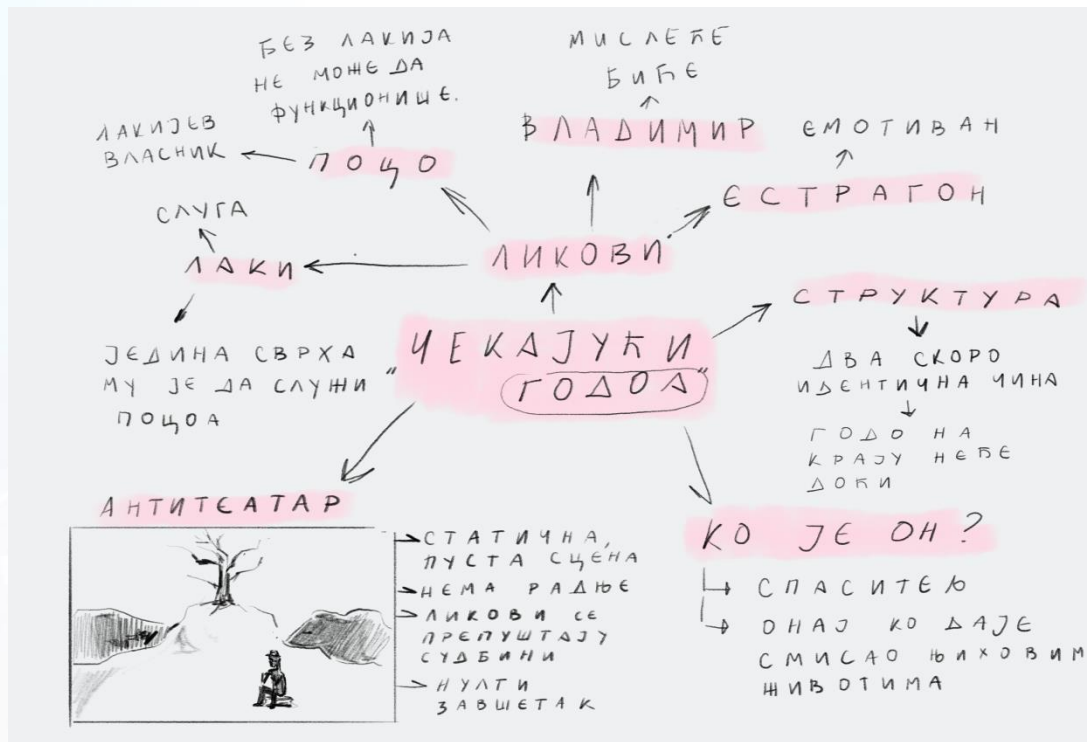 БЕЗ ЛАКИЈА
НЕ МОЖЕ ДА
ФУНКЦИОНИШЕ.
МИСЛЕЋЕ
БИЋЕ
ЛАКИЈЕВ
ВЛАСНИК
ПОЦО
ВЛАДИМИР
ЕМОТИВАН
ЕСТРАГОН
СЛУГА
ЛАКИ
ЛИКОВИ
СТРУКТУРА
ЈЕДИНА СВРХА
МУ ЈЕ ДА СЛУЖИ
ПОЦОА
"ЧЕКАЈУЋИ
ГОДОА"
ДВА СКОРО
ИДЕНТИЧНА ЧИНА
ГОДО НА
КРАЈУ НЕЋЕ
ДОЋИ
АНТИТЕАТАР
СТАТИЧНА,
ПУСТА СЦЕНА
НЕМА РАДЊЕ
ЛИКОВИ СЕ
ПРЕПУШТАЈУ
СУДБИНИ
НУЛТИ
ЗАВШЕТАК
КО ЈЕ ОН?
СПАСИТЕЉ
ОНАЈ КО ДАЈЕ
СМИСАО ЊИХОВИМ
ЖИВОТИМА